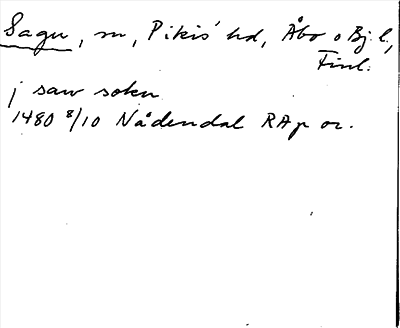 Sagu, sn, Pikis hd, Åbo o Bj. l.,
Finl.
j saw sokn
1480 8/10 Nådendal RAp or.